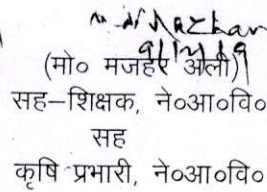 (मो० मजहर अली)
सह–शिक्षक, ने०आ०वि०
सह
कृषि प्रभारी, ने०आ०वि०